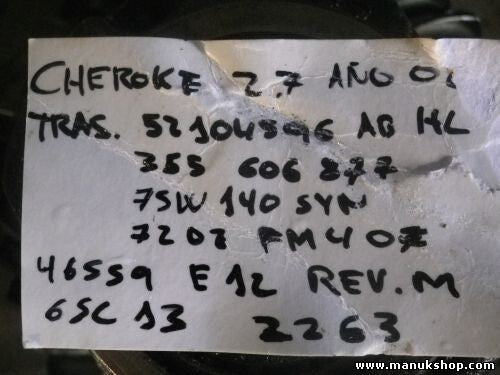 CHEROKE 27 AÑO 01
TRAS. 52104596 AB HL
355 606 877
75W 140 SYN
7202 FM407
46559 E12 REV. M
65C13 2263
www.manukshop.com